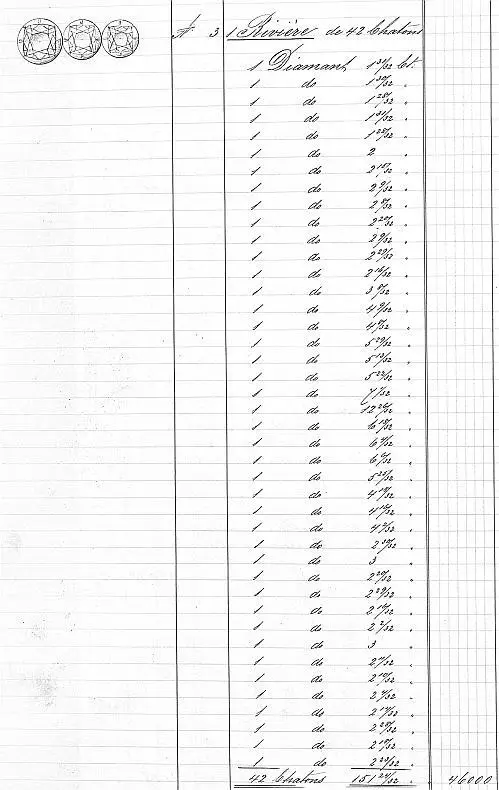 № 3 1 Rivière de 42 Chatons
1 Diamant 1 31/32 Ct.
1 do 1 30/32 "
1 do 1 28/32 "
1 do 1 31/32 "
1 do 1 28/32 "
1 do 2 "
1 do 2 18/32 "
1 do 2 9/32 "
1 do 2 8/32 "
1 do 2 20/32 "
1 do 2 9/32 "
1 do 2 29/32 "
1 do 2 16/32 "
1 do 3 8/32 "
1 do 4 9/32 "
1 do 4 8/32 "
1 do 5 20/32 "
1 do 5 12/32 "
1 do 5 22/32 "
1 do 7 1/32 "
1 do 12 26/32 "
1 do 6 18/32 "
1 do 6 /32 "
1 do 6 /32 "
1 do 5 25/32 "
1 do 4 19/32 "
1 do 4 14/32 "
1 do 4 2/32 "
1 do 2 30/32 "
1 do 3 "
1 do 2 20/32 "
1 do 2 29/32 "
1 do 2 19/32 "
1 do 2 2/32 "
1 do 3 "
1 do 2 /32 "
1 do 2 10/32 "
1 do 2 /32 "
1 do 2 17/32 "
1 do 2 28/32 "
1 do 2 19/32 "
1 do 2 23/32 "
42 Chatons 151 24/32 " 46000